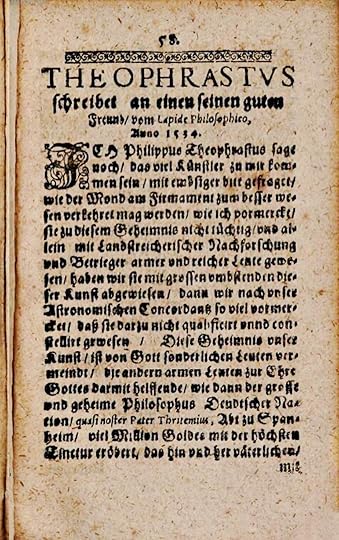 58.
THEOPHRASTVS
schreibet an einen seinen guten
Freund/ vom Lapide Philosophico,
Anno 1534.
ICH Philippus Theophrastus sage
noch/ das viel Künstler zu mir kom-
men sein/ mit emsiger bitt gefraget/
wie der Mond am Firmament zum besser we-
sen verkehret mag werden/ wie ich vormerckt/
sie zu diesem Geheimnis nicht tüchtig/ vnd al-
lein mit Landstreicherischer Nachforschung
vnd Betrieger armer vnd reicher Leute gewe-
sen/ haben wir sie mit grossen vmbstenden die-
ser Kunst abgewiesen/ dann wir nach vnser
Astronomischen Concordantz so viel vormer-
cket/ daß sie darzu nicht qualificirt vnnd con-
stellirt gewesen/ Diese Geheimnis vnser
Kunst/ ist von Gott sonderlichen Leuten ver-
meindt/ die andern armen Leuten zur Ehre
Gottes darmit helffende/ wie dann der grosse
vnd geheime Philosophus Deudtscher Na-
tion/ quasi noster Pater Thritemius, Abt zu Span-
heim/ viel Million Goldes mit der höchsten
Tinctur eröbert/ das hin vnd her väterlichen/